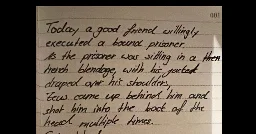 001
Today a good friend willingly
executed a bound prisoner.
As the prisoner was sitting in a then
hersh blendage, with his jacket
draped over his shoulders,
Jew came up behind him and
shot him into the back off the
head multiple times.